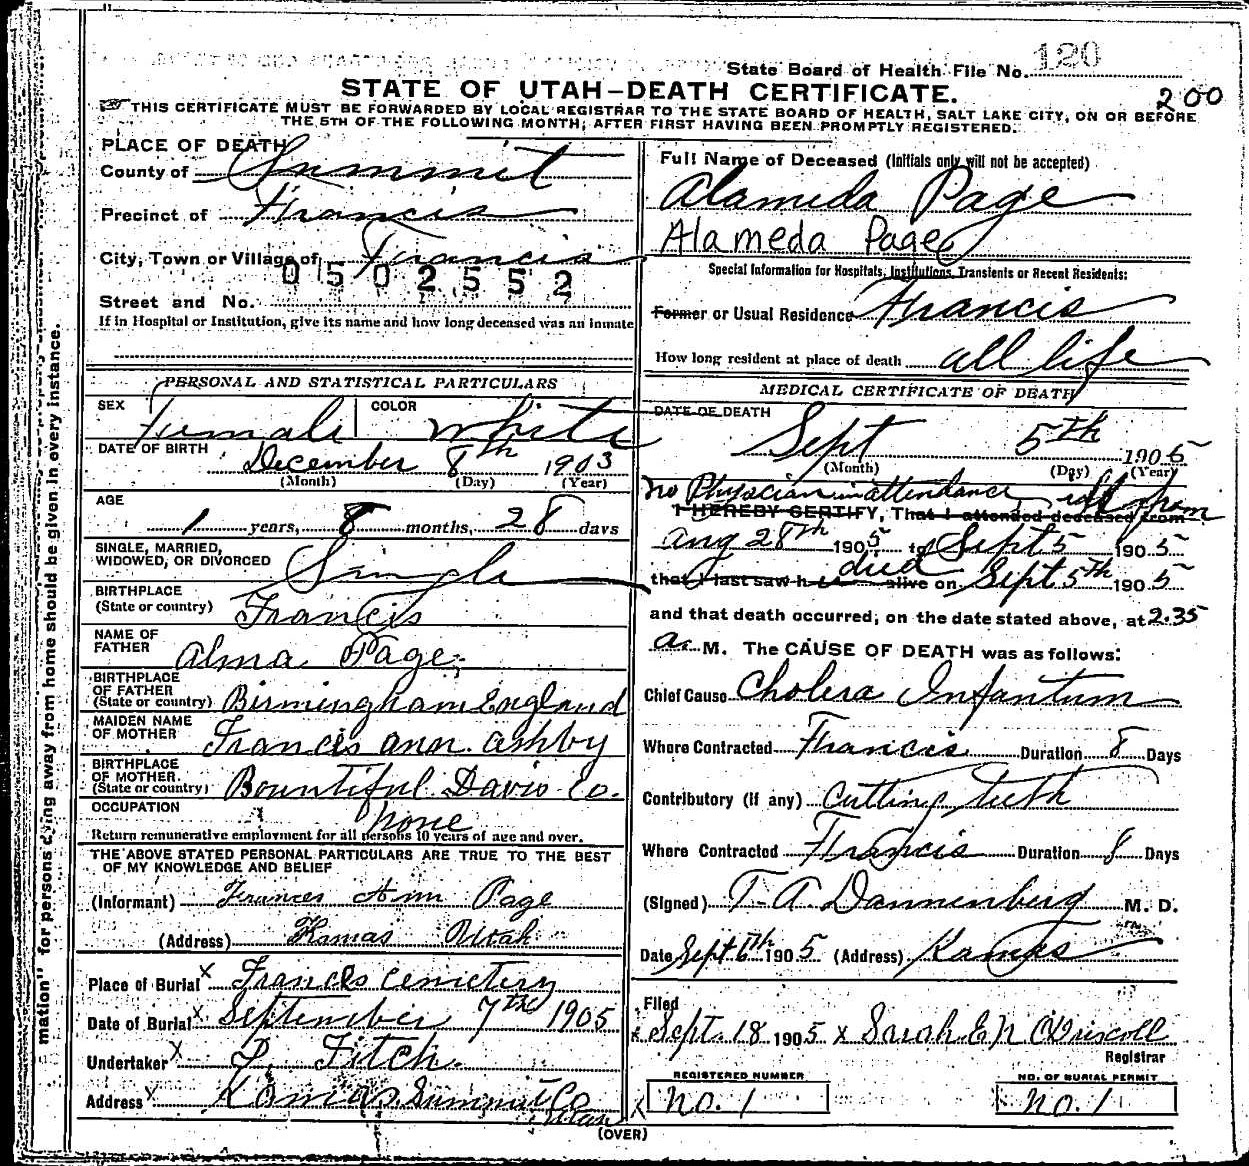 120
State Board of Health File No.
STATE OF UTAH—DEATH CERTIFICATE.
200
THIS CERTIFICATE MUST BE FORWARDED BY LOCAL REGISTRAR TO THE STATE BOARD OF HEALTH, SALT LAKE CITY, ON OR BEFORE
THE 5TH OF THE FOLLOWING MONTH, AFTER FIRST HAVING BEEN PROMPTLY REGISTERED.
PLACE OF DEATH
County of Summit
Precinct of Francis
City, Town or Village of Francis
0502552
Street and No.
If in Hospital or Institution, give its name and how long deceased was an inmate
PERSONAL AND STATISTICAL PARTICULARS
SEX Female COLOR White
DATE OF BIRTH December 8th 1903
(Month) (Day) (Year)
AGE
1 years, 8 months, 28 days
SINGLE, MARRIED,
WIDOWED, OR DIVORCED Single
BIRTHPLACE
(State or country) Francis
NAME OF
FATHER Alma Page
BIRTHPLACE
OF FATHER
(State or country) Birmingham England
MAIDEN NAME
OF MOTHER Francis ann. Ashby
BIRTHPLACE
OF MOTHER
(State or country) Bountiful Davis Co.
OCCUPATION none
Return remunerative employment for all persons 10 years of age and over.
THE ABOVE STATED PERSONAL PARTICULARS ARE TRUE TO THE BEST
OF MY KNOWLEDGE AND BELIEF
(Informant) Frances Ann Page
(Address) Kamas Utah
Place of Burial x Francis Cemetery
Date of Burial x September 7th 1905
Undertaker x Fitch.
Address x Kamas Summit Co
Utah
Full Name of Deceased (Initials only will not be accepted)
Alameda Page
Alameda Page
Special Information for Hospitals, Institutions, Transients or Recent Residents:
Former or Usual Residence Francis
How long resident at place of death all life
MEDICAL CERTIFICATE OF DEATH
DATE OF DEATH
Sept 5th 1905
(Month) (Day) (Year)
no Physician in attendance from
I HEREBY CERTIFY, That I attended deceased from
Aug 28th 1905 to Sept 5 1905
died
that I last saw h alive on Sept 5th 1905
and that death occurred, on the date stated above, at 2.35
a. M. The CAUSE OF DEATH was as follows:
Chief Cause Cholera Infantum
Where Contracted Francis Duration 8 Days
Contributory (if any) Cutting teeth
Where Contracted Francis Duration 8 Days
(Signed) T. A. Dannenberg M. D.
Date Sept 6th 1905 (Address) Kamas
Filed
x Sept. 18 1905 x Sarah E N O'Driscoll
Registrar
REGISTERED NUMBER
x no. 1
NO. OF BURIAL PERMIT
no. 1
(OVER)
mation" for persons dying away from home should be given in every instance.